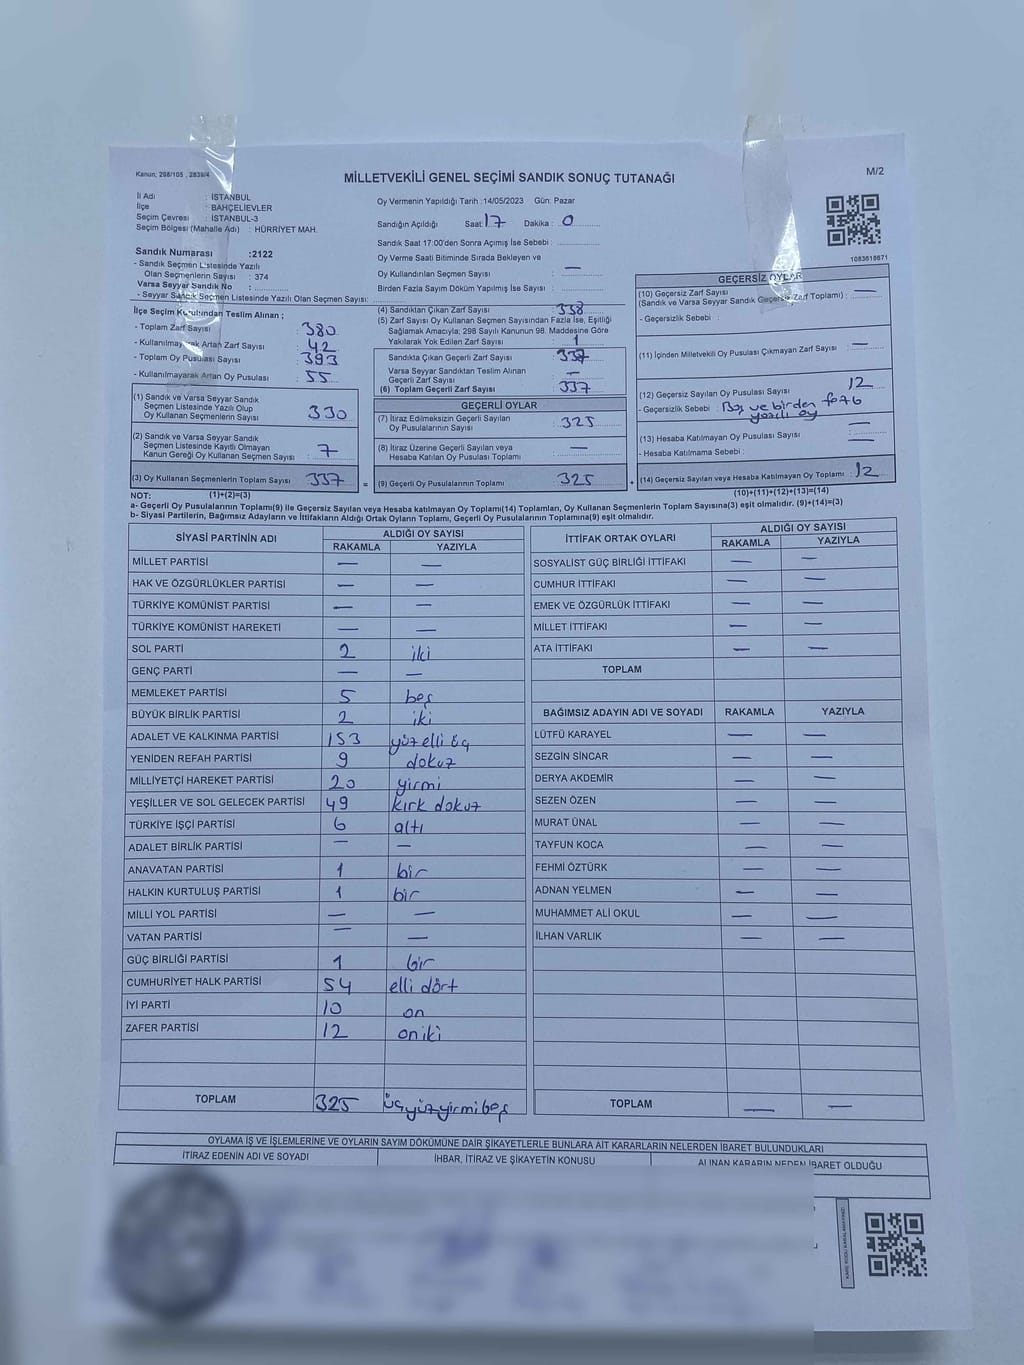 Kanun; 298/105 , 2839/4
MİLLETVEKİLİ GENEL SEÇİMİ SANDIK SONUÇ TUTANAĞI
M/2
İl Adı : İSTANBUL
İlçe : BAHÇELİEVLER
Seçim Çevresi : İSTANBUL-3
Seçim Bölgesi (Mahalle Adı) : HÜRRİYET MAH.
Sandık Numarası :2122
- Sandık Seçmen Listesinde Yazılı
Olan Seçmenlerin Sayısı : 374
Varsa Seyyar Sandık No :
- Seyyar Sandık Seçmen Listesinde Yazılı Olan Seçmen Sayısı:
İlçe Seçim Kurulundan Teslim Alınan ;
- Toplam Zarf Sayısı : 380
- Kullanılmayarak Artan Zarf Sayısı : 42
- Toplam Oy Pusulası Sayısı : 393
- Kullanılmayarak Artan Oy Pusulası : 55
(1) Sandık ve Varsa Seyyar Sandık
Seçmen Listesinde Yazılı Olup
Oy Kullanan Seçmenlerin Sayısı : 330
(2) Sandık ve Varsa Seyyar Sandık
Seçmen Listesinde Kayıtlı Olmayan
Kanun Gereği Oy Kullanan Seçmen Sayısı : 7
(3) Oy Kullanan Seçmenlerin Toplam Sayısı : 337 =
Oy Vermenin Yapıldığı Tarih : 14/05/2023 Gün: Pazar
Sandığın Açıldığı Saat: 17 Dakika : 0
Sandık Saat 17:00'den Sonra Açılmış İse Sebebi :
Oy Verme Saati Bitiminde Sırada Bekleyen ve
Oy Kullandırılan Seçmen Sayısı : —
Birden Fazla Sayım Döküm Yapılmış İse Sayısı :
(4) Sandıktan Çıkan Zarf Sayısı : 338
(5) Zarf Sayısı Oy Kullanan Seçmen Sayısından Fazla İse, Eşitliği
Sağlamak Amacıyla; 298 Sayılı Kanunun 98. Maddesine Göre
Yakılarak Yok Edilen Zarf Sayısı : 1
Sandıkta Çıkan Geçerli Zarf Sayısı : 337
Varsa Seyyar Sandıktan Teslim Alınan
Geçerli Zarf Sayısı : —
(6) Toplam Geçerli Zarf Sayısı : 337
GEÇERLİ OYLAR
(7) İtiraz Edilmeksizin Geçerli Sayılan
Oy Pusulalarının Sayısı : 325
(8) İtiraz Üzerine Geçerli Sayılan veya
Hesaba Katılan Oy Pusulası Toplamı : —
(9) Geçerli Oy Pusulalarının Toplamı : 325 +
1083618671
GEÇERSİZ OYLAR
(10) Geçersiz Zarf Sayısı
(Sandık ve Varsa Seyyar Sandık Geçersiz Zarf Toplamı) : —
- Geçersizlik Sebebi :
(11) İçinden Milletvekili Oy Pusulası Çıkmayan Zarf Sayısı : —
(12) Geçersiz Sayılan Oy Pusulası Sayısı : 12
- Geçersizlik Sebebi : Boş ve birden
oy
(13) Hesaba Katılmayan Oy Pusulası Sayısı : —
- Hesaba Katılmama Sebebi :
(14) Geçersiz Sayılan veya Hesaba Katılmayan Oy Toplamı : 12
NOT: (1)+(2)=(3) (10)+(11)+(12)+(13)=(14)
a- Geçerli Oy Pusulalarının Toplamı(9) ile Geçersiz Sayılan veya Hesaba katılmayan Oy Toplamı(14) Toplamları, Oy Kullanan Seçmenlerin Toplam Sayısına(3) eşit olmalıdır. (9)+(14)=(3)
b- Siyasi Partilerin, Bağımsız Adayların ve İttifakların Aldığı Ortak Oyların Toplamı, Geçerli Oy Pusulalarının Toplamına(9) eşit olmalıdır.
SİYASİ PARTİNİN ADI ALDIĞI OY SAYISI
RAKAMLA YAZIYLA
MİLLET PARTİSİ — —
HAK VE ÖZGÜRLÜKLER PARTİSİ — —
TÜRKİYE KOMÜNİST PARTİSİ — —
TÜRKİYE KOMÜNİST HAREKETİ — —
SOL PARTİ 2 iki
GENÇ PARTİ — —
MEMLEKET PARTİSİ 5 beş
BÜYÜK BİRLİK PARTİSİ 2 iki
ADALET VE KALKINMA PARTİSİ 153 yüz elli üç
YENİDEN REFAH PARTİSİ 9 dokuz
MİLLİYETÇİ HAREKET PARTİSİ 20 yirmi
YEŞİLLER VE SOL GELECEK PARTİSİ 49 kırk dokuz
TÜRKİYE İŞÇİ PARTİSİ 6 altı
ADALET BİRLİK PARTİSİ — —
ANAVATAN PARTİSİ 1 bir
HALKIN KURTULUŞ PARTİSİ 1 bir
MİLLİ YOL PARTİSİ — —
VATAN PARTİSİ — —
GÜÇ BİRLİĞİ PARTİSİ 1 bir
CUMHURİYET HALK PARTİSİ 54 elli dört
İYİ PARTİ 10 on
ZAFER PARTİSİ 12 oniki
TOPLAM 325 üçyüzyirmibeş
İTTİFAK ORTAK OYLARI ALDIĞI OY SAYISI
RAKAMLA YAZIYLA
SOSYALİST GÜÇ BİRLİĞİ İTTİFAKI — —
CUMHUR İTTİFAKI — —
EMEK VE ÖZGÜRLÜK İTTİFAKI — —
MİLLET İTTİFAKI — —
ATA İTTİFAKI — —
TOPLAM
BAĞIMSIZ ADAYIN ADI VE SOYADI RAKAMLA YAZIYLA
LÜTFÜ KARAYEL — —
SEZGİN SİNCAR — —
DERYA AKDEMİR — —
SEZEN ÖZEN — —
MURAT ÜNAL — —
TAYFUN KOCA — —
FEHMİ ÖZTÜRK — —
ADNAN YELMEN — —
MUHAMMET ALİ OKUL — —
İLHAN VARLIK — —
TOPLAM — —
OYLAMA İŞ VE İŞLEMLERİNE VE OYLARIN SAYIM DÖKÜMÜNE DAİR ŞİKAYETLERLE BUNLARA AİT KARARLARIN NELERDEN İBARET BULUNDUKLARI
İTİRAZ EDENİN ADI VE SOYADI İHBAR, İTİRAZ VE ŞİKAYETİN KONUSU ALINAN KARARIN NEDEN İBARET OLDUĞU
KARE KODU KARALAMAYINIZ!